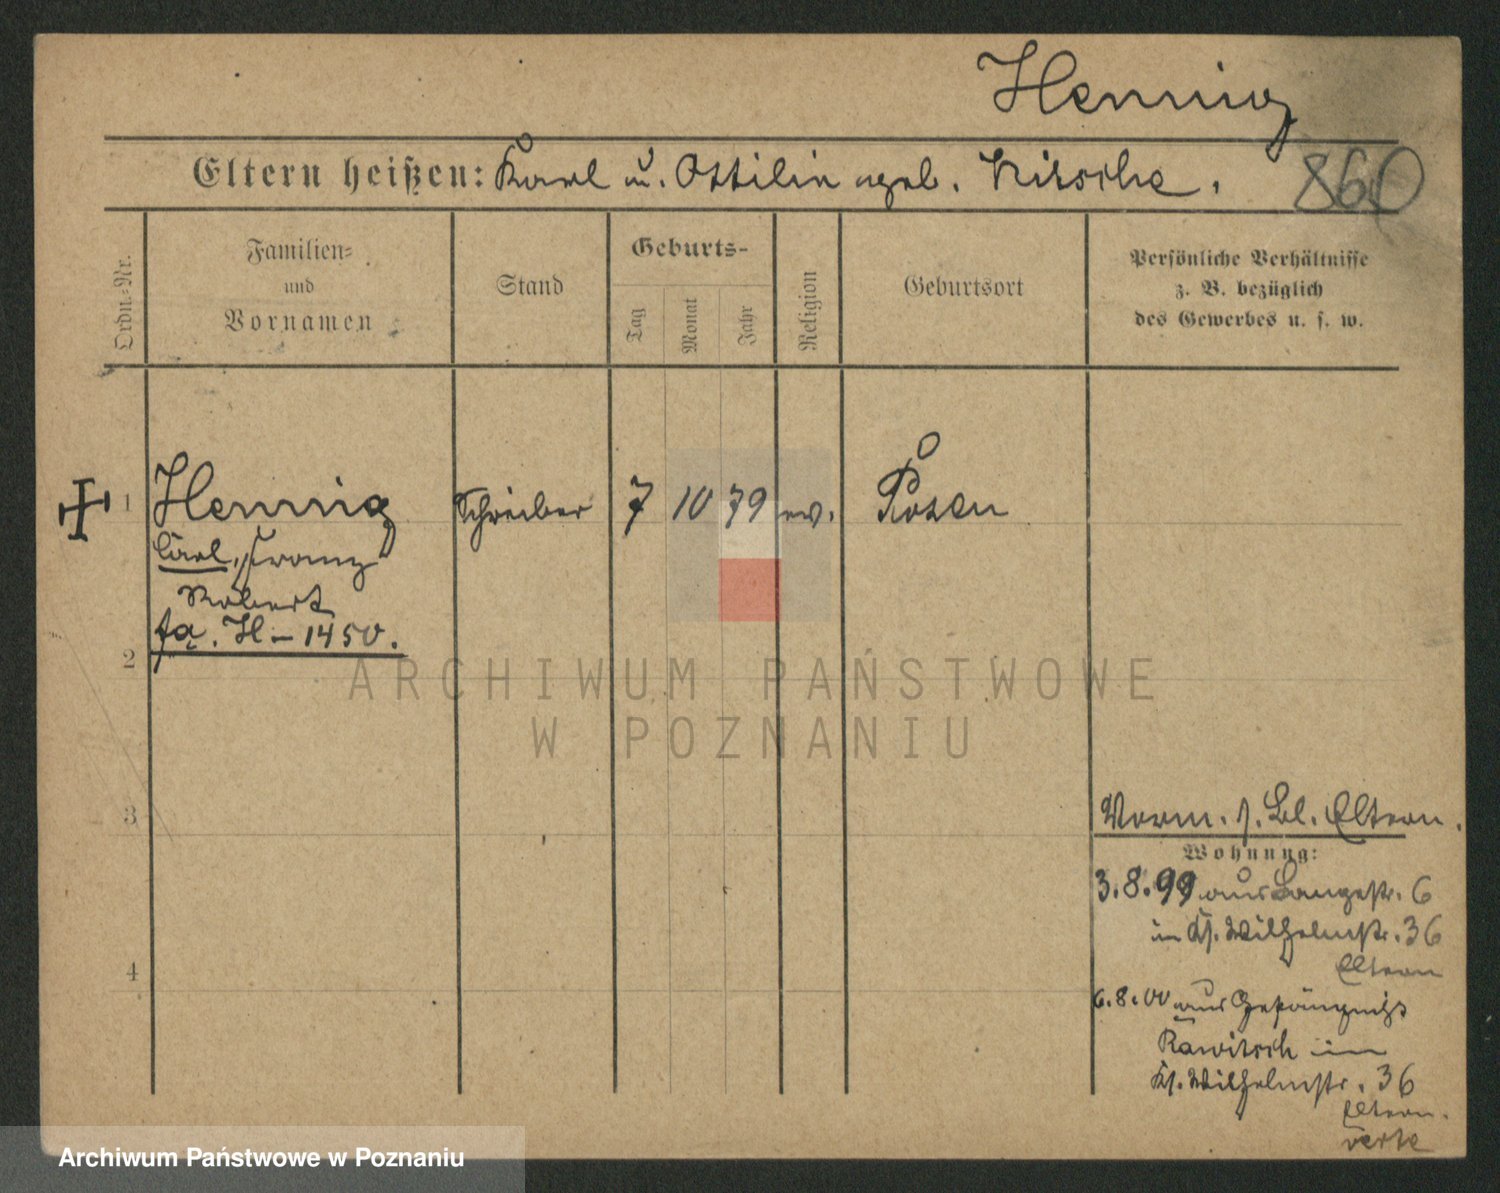 Hennig
Eltern heißen: Karl u. Ottilie geb. Nitsche.
860
Ordn.=Nr.
Familien=
und
Vornamen
Stand
Geburts-
Tag
Monat
Jahr
Religion
Geburtsort
Persönliche Verhältnisse
z. B. bezüglich
des Gewerbes u. s. w.
1 Hennig Schreiber 7 10 79 ev. Posen
Carl, Franz
Robert
fa. H – 1450.
2
ARCHIWUM PAŃSTWOWE
W POZNANIU
3
Vorm. s. Bl. Eltern.
Wohnung:
3.8.99 aus Langestr. 6
in Kl. Wilhelmstr. 36
Eltern
4
6.8.00 aus Gefängniß
Rawitsch in
Kl. Wilhelmstr. 36
Eltern.
verte
Archiwum Państwowe w Poznaniu